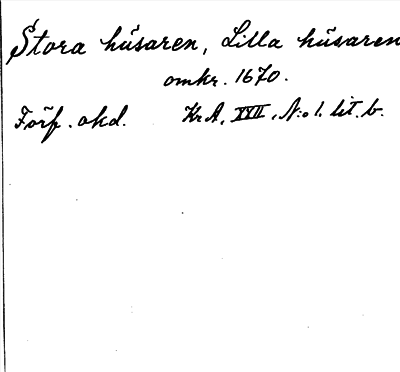 Stora húsaren, Lilla húsaren
omkr. 1670.
Förf. okd. KrA, XVII, N:o 1. lit. b.